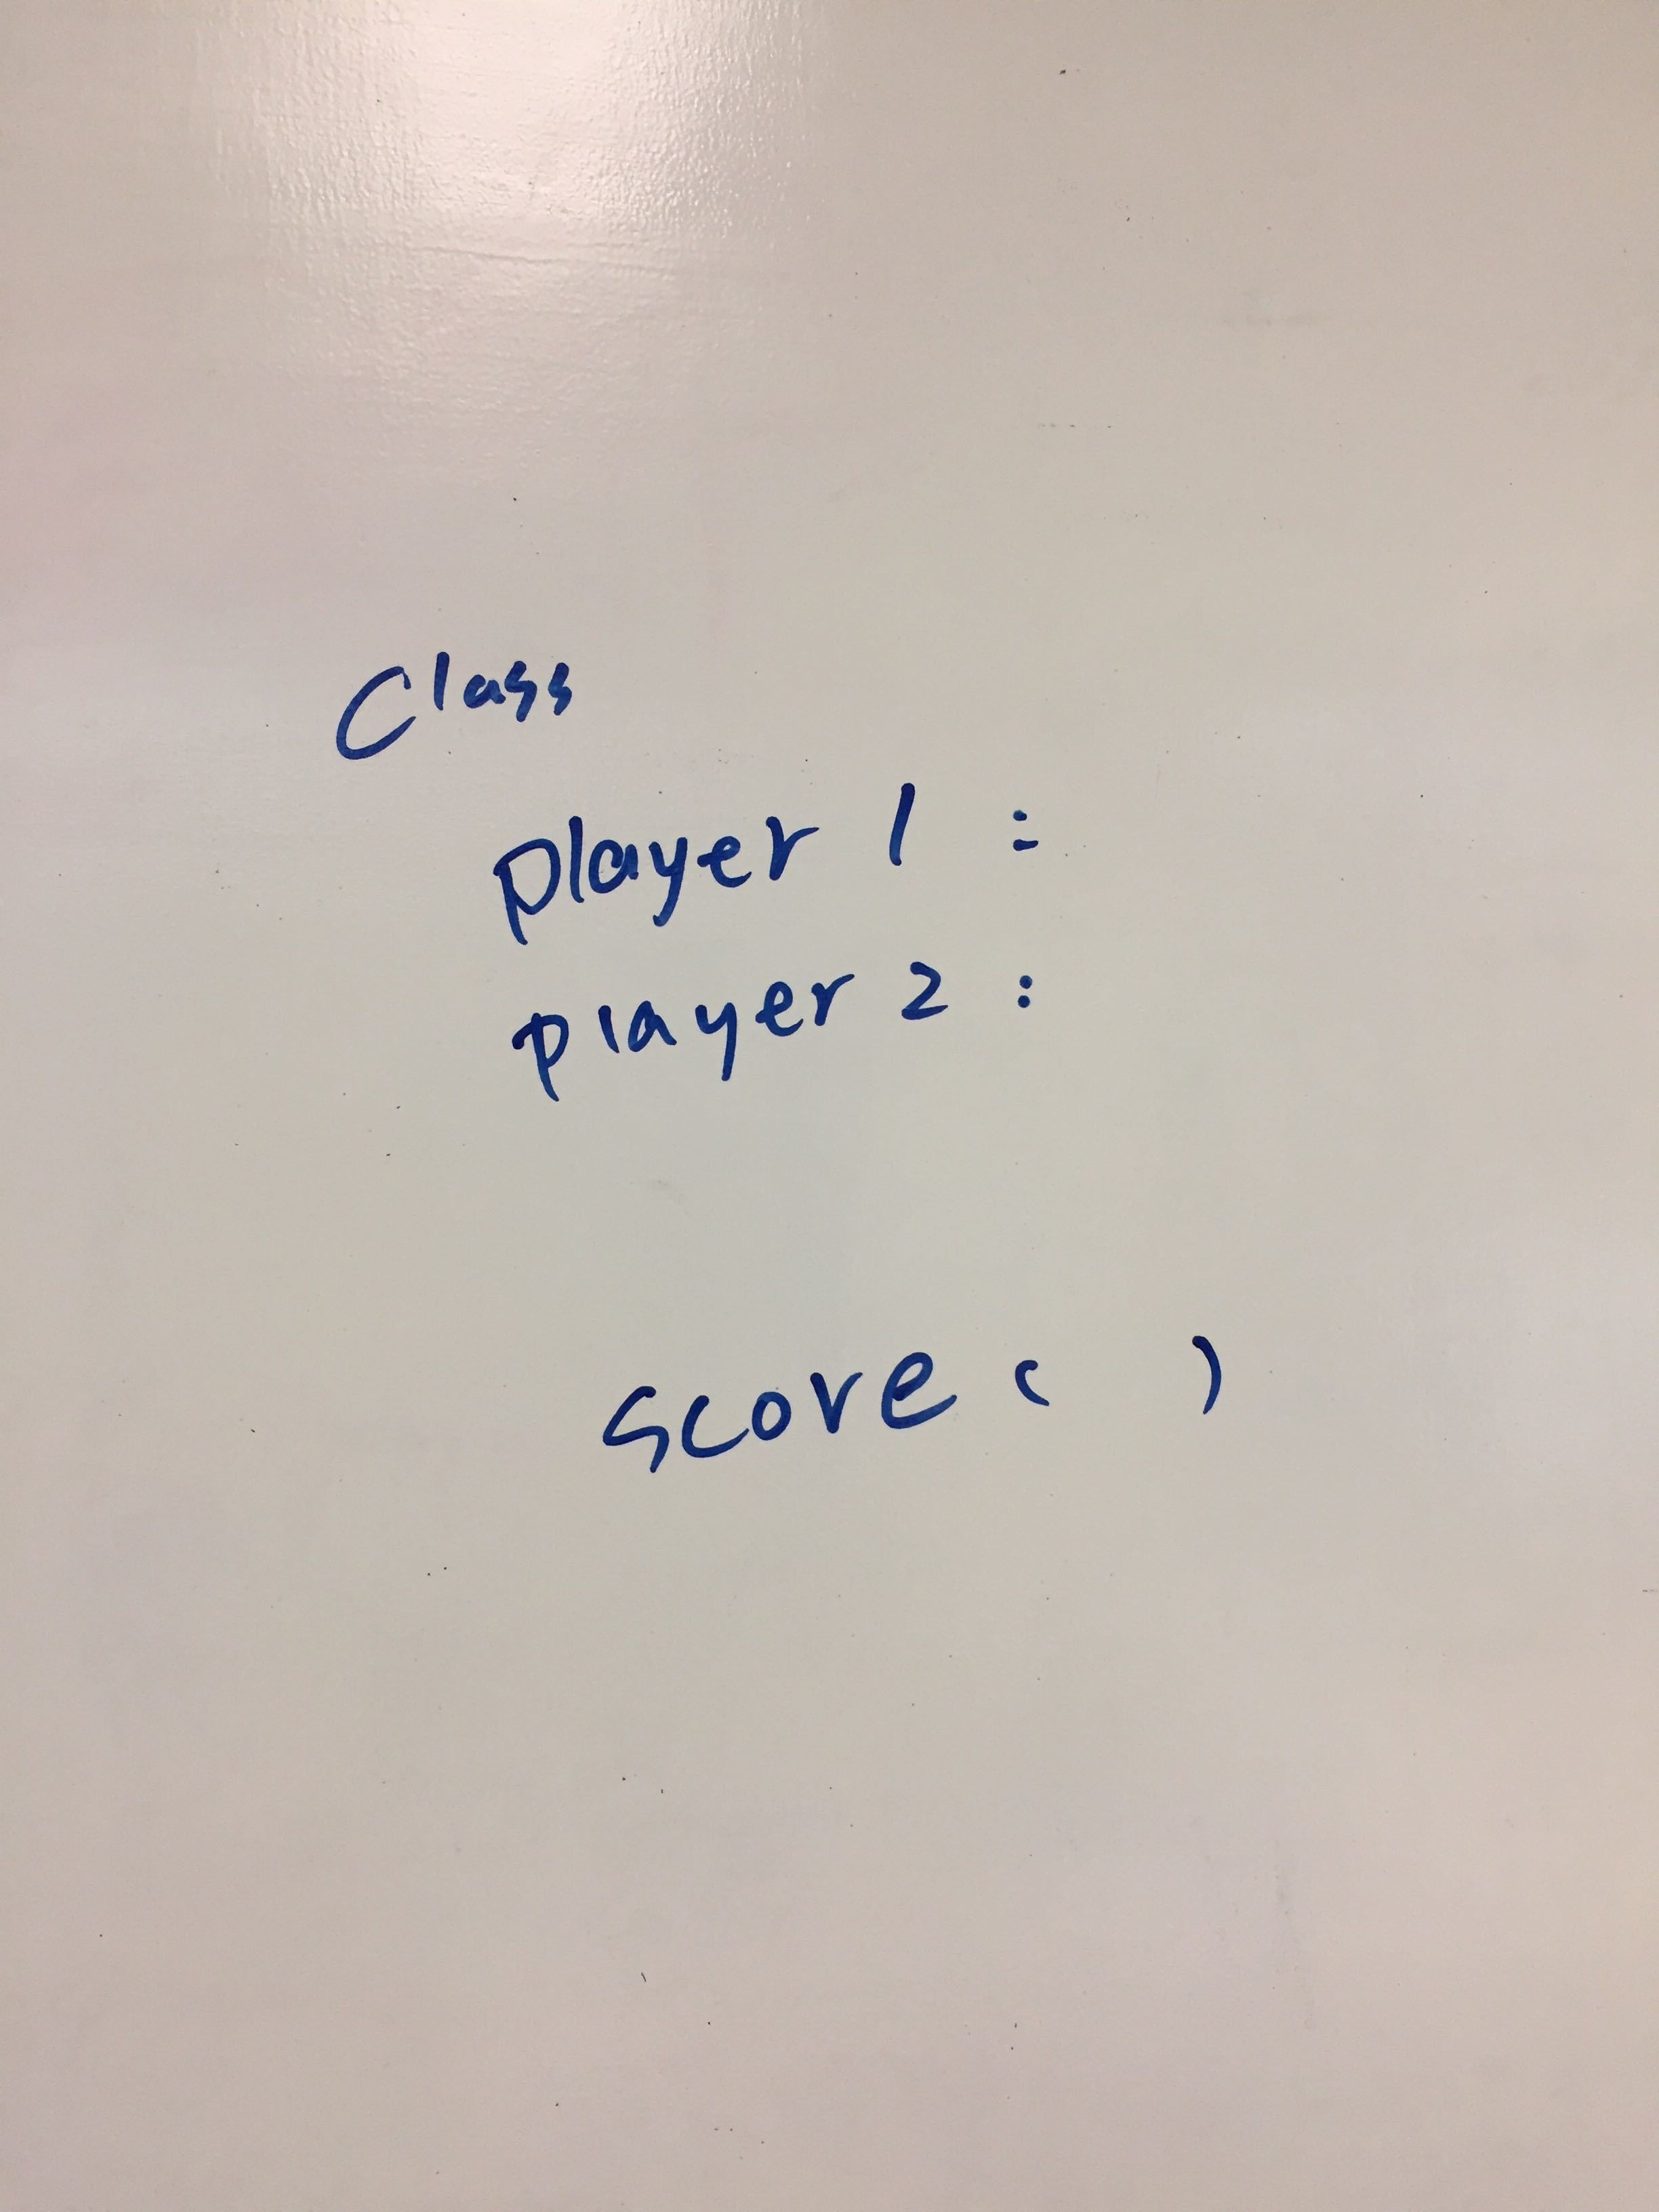 Class
player 1 :
player 2 :
score ( )